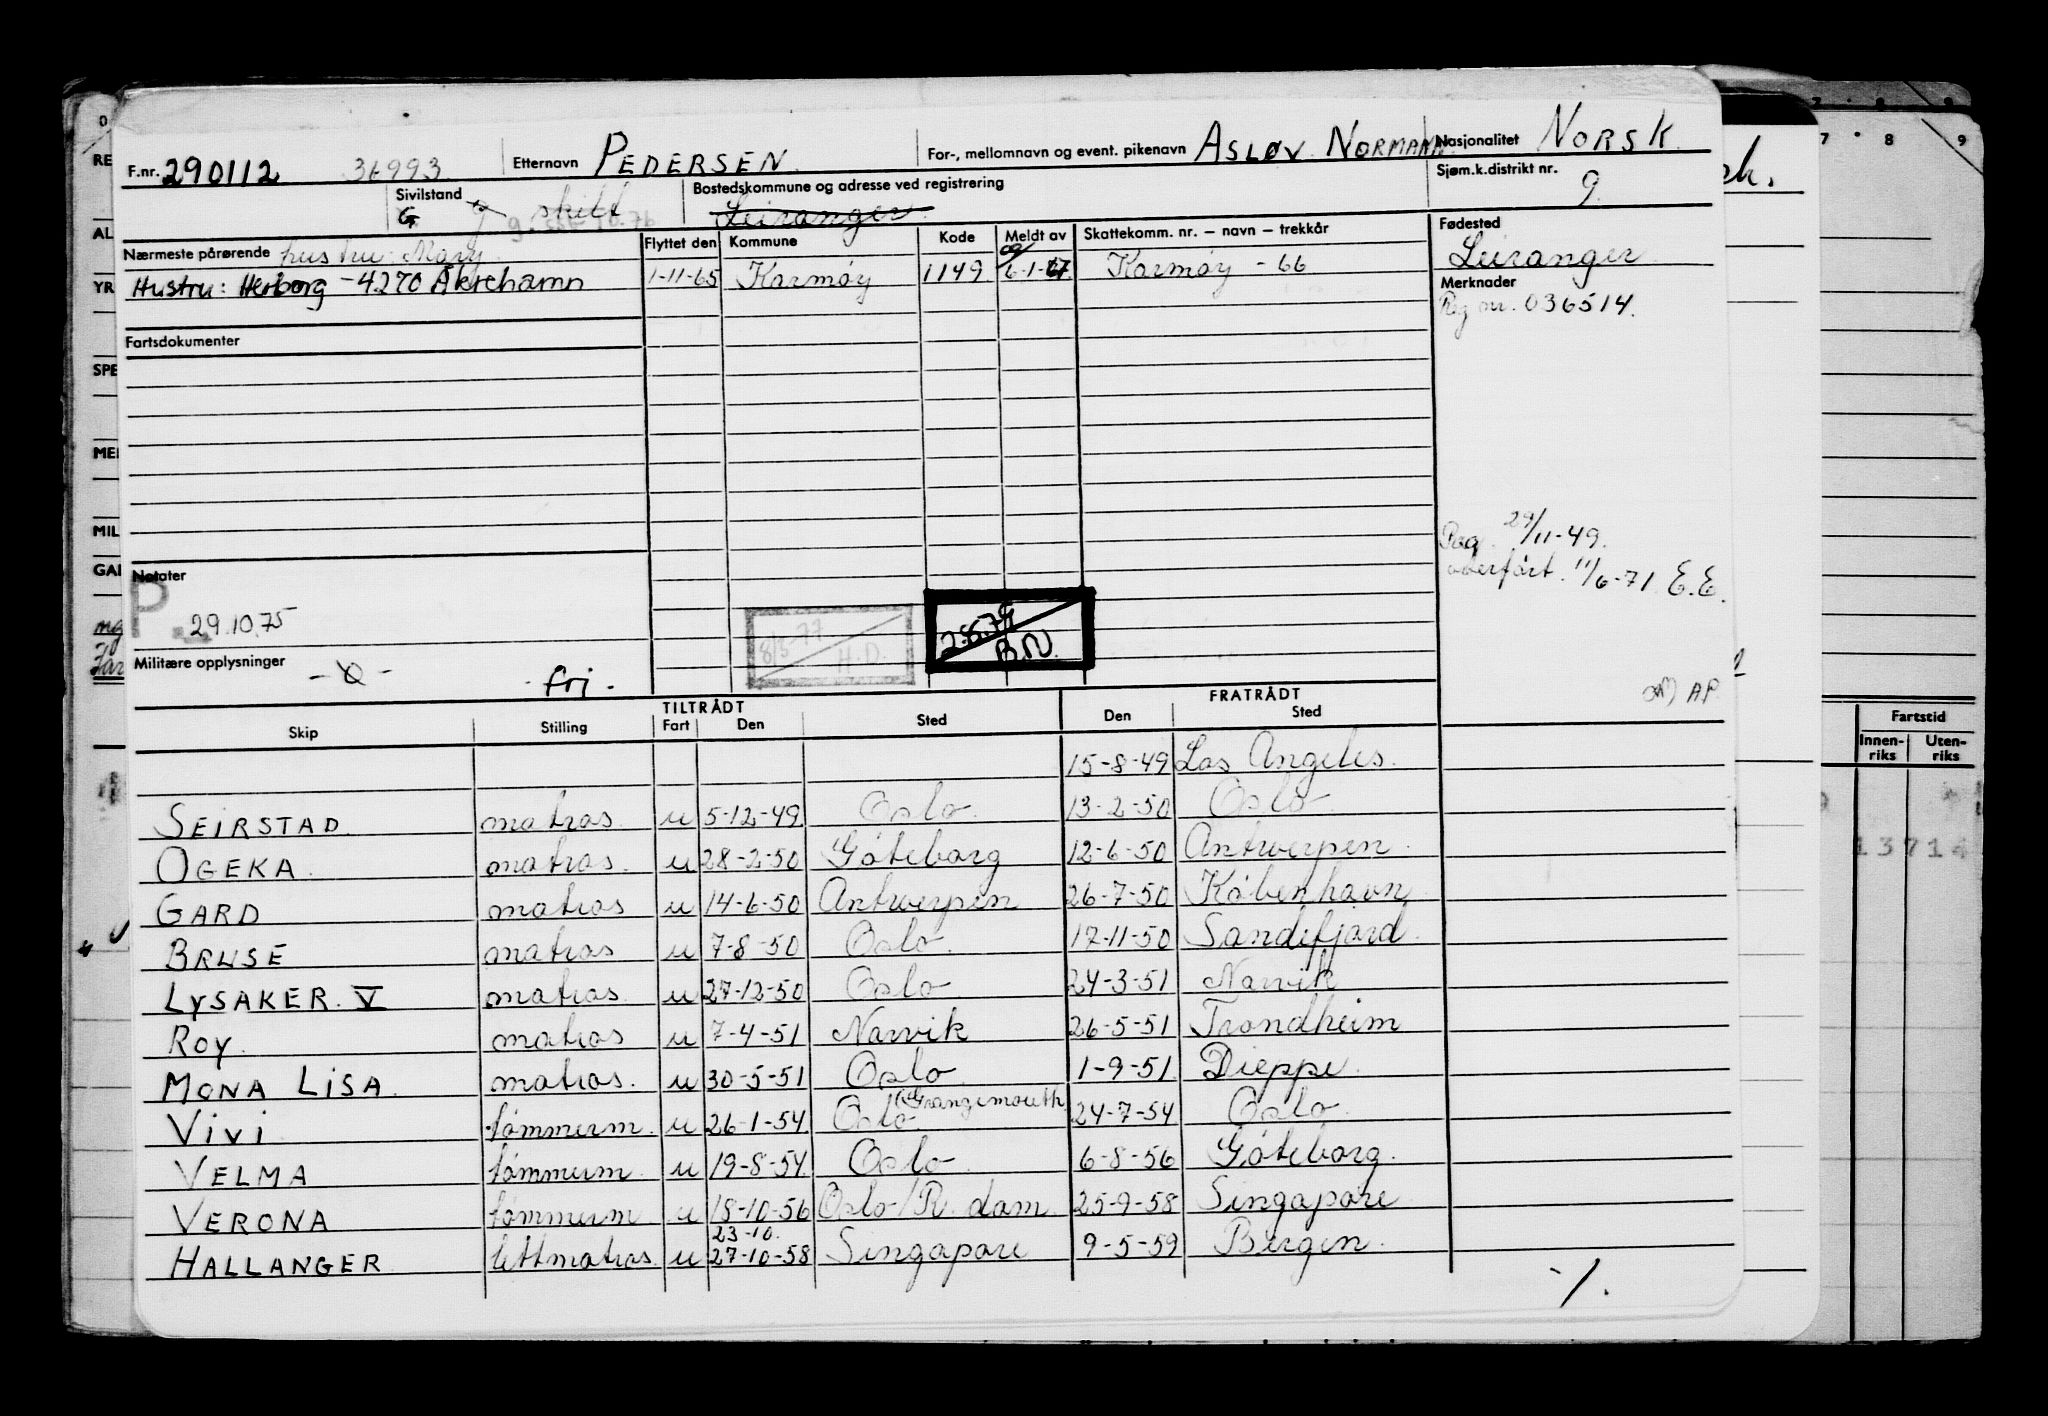 F.nr. 290112 36993 Etternavn PEDERSEN For-, mellomnavn og event. pikenavn ASLØV NORMANN Nasjonalitet NORSK
Sivilstand G g skilt Bostedskommune og adresse ved registrering Leiranger Sjøm.k.distrikt nr. 9
Nærmeste pårørende hustru: Mary Flyttet den Kommune Kode Meldt av Skattekomm. nr. – navn – trekkår Fødested Leiranger
Hustru: Herborg - 4270 Åkrehamn 1-11-65 Karmøy 1149 6-1-67 Karmøy - 66
Merknader
Reg nr. 036514.
Fartsdokumenter
29/11-49.
overført 11/6-71. E.E.
Notater
P.
29.10.75
8/3-77 H.D.
B.N.
Militære opplysninger fri.
AP.
TILTRÅDT FRATRÅDT
Skip Stilling Fart Den Sted Den Sted
Fartstid
Innen-riks Uten-riks
15-8-49 Los Angeles.
SEIRSTAD. matros u 5-12-49 Oslo. 13-2-50 Oslo
OGEKA. matros. u 28-2-50 Göteborg 12-6-50 Antwerpen.
GARD matros u 14-6-50 Antwerpen 26-7-50 København
BRUSE matros u 7-8-50 Oslo. 17-11-50 Sandefjord.
LYSAKER. V matros u 27-12-50 Oslo 24-3-51 Narvik
ROY. matros u 7-4-51 Narvik 26-5-51 Trondheim
MONA LISA. matros. u 30-5-51 Oslo 1-9-51 Dieppe.
VIVI tømmerm. u 26-1-54 Oslo (Grangemouth 24-7-54 Oslo.
VELMA tømmerm. u 19-8-54 Oslo 6-8-56 Göteborg.
VERONA tømmerm u 18-10-56 Oslo/R. dam. 25-9-58 Singapore
23-10.
HALLANGER lettmatros. u 27-10-58 Singapore 9-5-59 Bergen.
-/.
13714